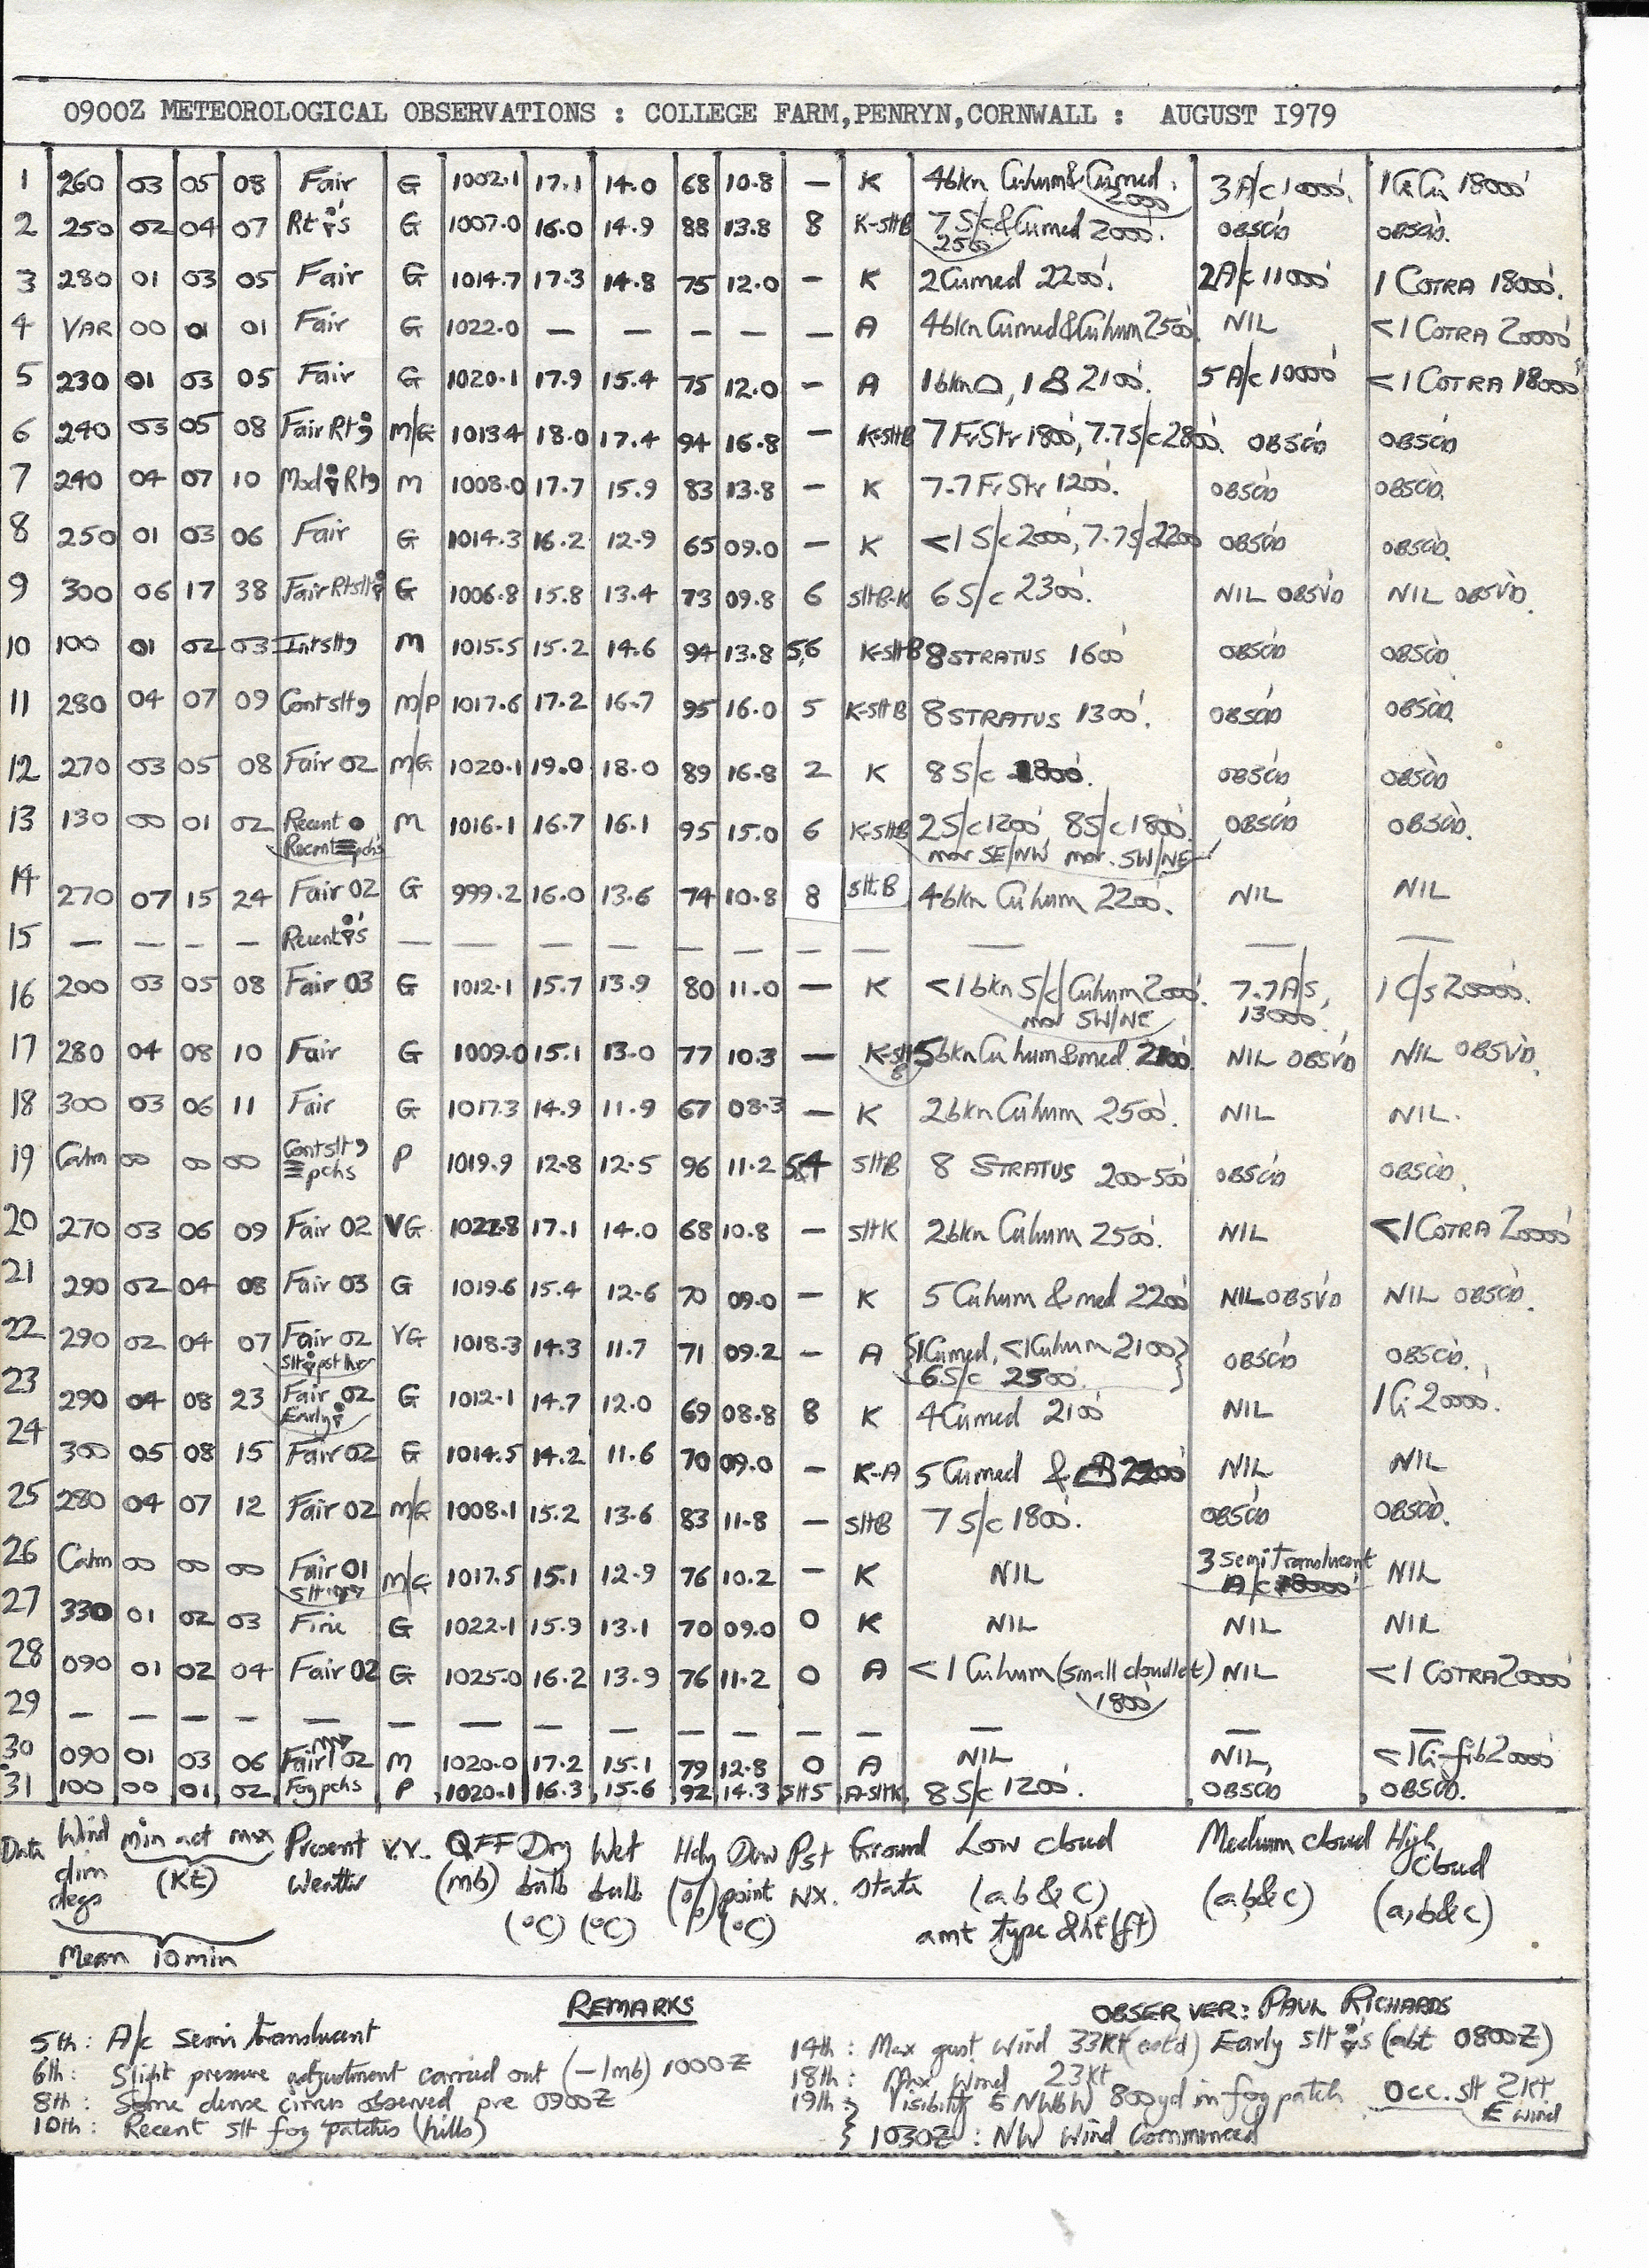 0900Z METEOROLOGICAL OBSERVATIONS : COLLEGE FARM,PENRYN,CORNWALL : AUGUST I979
1 260 03 05 08 Fair G 1002.1 17.1 14.0 68 10.8 — K 4bkn Cuhum&Cumed 2000' 3 A/c 10000'. 1 Ci Cu 18000'
2 250 02 04 07 Rt 's G 1007.0 16.0 14.9 88 13.8 8 K-sltB 7 S/c 2500 & Cumed 2000'. OBSCD OBSCD.
3 280 01 03 05 Fair G 1014.7 17.3 14.8 75 12.0 — K 2Cumed 2200'. 2A/c 11000' 1 COTRA 18000'.
4 VAR 00 01 01 Fair G 1022.0 — — — — — A 4bkn Cumed&Cuhum 2500' NIL <1 COTRA 20000'
5 230 01 03 05 Fair G 1020.1 17.9 15.4 75 12.0 — A 1bkn , 1 2100'. 5 A/c 10000' <1 COTRA 18000'
6 240 03 05 08 Fair Rt M/G 1013.4 18.0 17.4 94 16.8 — K-sltB 7 FrStr 1800', 7.7 S/c 2800'. OBSCD OBSCD
7 240 04 07 10 Mod Rt M 1008.0 17.7 15.9 83 13.8 — K 7.7 FrStr 1200'. OBSCD OBSCD.
8 250 01 03 06 Fair G 1014.3 16.2 12.9 65 09.0 — K <1 S/c 2000', 7.7 S/c 2200 OBSCD OBSCD.
9 300 06 17 38 Fair Rtslt G 1006.8 15.8 13.4 73 09.8 6 sltB-K 6 S/c 2300'. NIL OBSVD NIL OBSVD.
10 100 01 02 03 Intslt, M 1015.5 15.2 14.6 94 13.8 5,6 K-sltB 8 STRATUS 1600' OBSCD OBSCD
11 280 04 07 09 Contslt, M/P 1017.6 17.2 16.7 95 16.0 5 K-sltB 8 STRATUS 1300'. OBSCD OBSCD.
12 270 03 05 08 Fair 02 M/G 1020.1 19.0 18.0 89 16.8 2 K 8 S/c 1800'. OBSCD OBSCD
13 130 00 01 02 Recent ● M 1016.1 16.7 16.1 95 15.0 6 K-sltB 2S/c 1200' 8S/c 1800' OBSCD OBSCD.
Recent ≡ pchs mov SE/NW mov. SW/NE
14 270 07 15 24 Fair 02 G 999.2 16.0 13.6 74 10.8 8 slt.B 4bkn Cuhum 2200'. NIL NIL
15 — — — — Recent 's — — — — — — — — — — —
16 200 03 05 08 Fair 03 G 1012.1 15.7 13.9 80 11.0 — K <1bkn S/c/Cuhum 2000'. 7.7 A/s, 1 C/s 20000'.
mov SW/NE 13000'.
17 280 04 08 10 Fair G 1009.0 15.1 13.0 77 10.3 — K-sltB 5bkn Cu hum&med 2100'. NIL OBSVD NIL OBSVD.
18 300 03 06 11 Fair G 1017.3 14.9 11.9 67 08.3 — K 2bkn Cuhum 2500'. NIL NIL.
19 Calm 00 00 00 Contslt, ≡ pchs P 1019.9 12.8 12.5 96 11.2 5,4 sltB 8 STRATUS 200-500' OBSCD OBSCD.
20 270 03 06 09 Fair 02 VG 17.1 14.0 68 10.8 — sltK 2bkn Cuhum 2500'. NIL <1 COTRA 20000'
21 290 02 04 08 Fair 03 G 1019.6 15.4 12.6 70 09.0 — K 5 Cuhum & med 2200' NIL OBSVD NIL OBSCD.
22 290 02 04 07 Fair 02 VG 1018.3 14.3 11.7 71 09.2 — A {1Cumed, <1Cuhum 2100'} OBSCD OBSCD.
slt pst hr 6S/c 2500'.
23 290 04 08 23 Fair 02 G 1012.1 14.7 12.0 69 08.8 8 K 4Cumed 2100' NIL 1 Ci 20000'.
Early
24 300 05 08 15 Fair 02 G 1014.5 14.2 11.6 70 09.0 — K-A 5 Cumed & NIL NIL
25 280 04 07 12 Fair 02 M/G 1008.1 15.2 13.6 83 11.8 — sltB 7 S/c 1800'. OBSCD OBSCD.
26 Calm 00 00 00 Fair 01 M/G 1017.5 15.1 12.9 76 10.2 — K NIL 3 semi translucent NIL
slt A/c
27 330 01 02 03 Fine G 1022.1 15.9 13.1 70 09.0 0 K NIL NIL NIL
28 090 01 02 04 Fair 02 G 1025.0 16.2 13.9 76 11.2 0 A <1 Cuhum (small cloudlet) 1800' NIL <1 COTRA 20000'
29 — — — — — — — — — — — — — — — —
30 090 01 03 06 Fair 02 M 1020.0 17.2 15.1 79 12.8 0 A NIL NIL, <1Ci-fib 20000'
31 100 00 01 02 Fog pchs P 1020.1 16.3 15.6 92 14.3 slt5 A-sltK 8 S/c 1200'. OBSCD OBSCD.
Date Wind dirn degs min act max (Kt) Present weather V.V. QFF (mb) Dry bulb (°C) Wet bulb (°C) Hdy (%) Dew point (°C) Pst WX. Ground state Low cloud (a b & c) amt type & ht (ft) Medium cloud (a,b&c) High cloud (a,b&c)
Mean 10min
REMARKS
OBSERVER: PAUL RICHARDS
5th: A/c semi translucent
6th: Slight pressure adjustment carried out (-1mb) 1000Z
8th: Some dense cirrus observed pre 0900Z
10th: Recent slt fog patches (hills)
14th: Max gust wind 33Kt (estd) Early slt 's (abt 0800Z)
18th: Max wind 23Kt
19th: Visibility 800yd in fog patch Occ. slt 2Kt E wind
1030Z: NW Wind Commenced